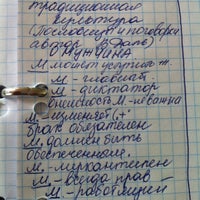 традиционная
культура
(пословицы и поговорки
автор В. Даль)
О МУЖЧИНА
М. может уступить ж.
М - главный
М - диктатор
внешность М - не важна
М - изменяет (+
брак обязателен
М. должен быть
обеспеченным.
М. - меркантилен
М - всегда прав
М - работящий